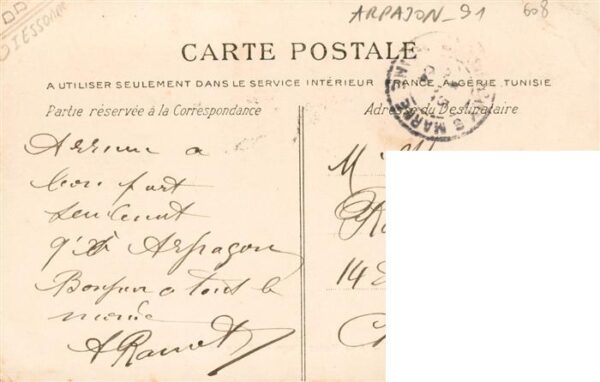 ARPAJON_91 608
D'ESSONNE
CARTE POSTALE
A UTILISER SEULEMENT DANS LE SERVICE INTÉRIEUR FRANCE, ALGÉRIE, TUNISIE
Partie réservée à la Correspondance Adresse du Destinataire
MARNE
Arrivée a
bon port
seulement
Arpagon
Bonjour a tous le
monde
14